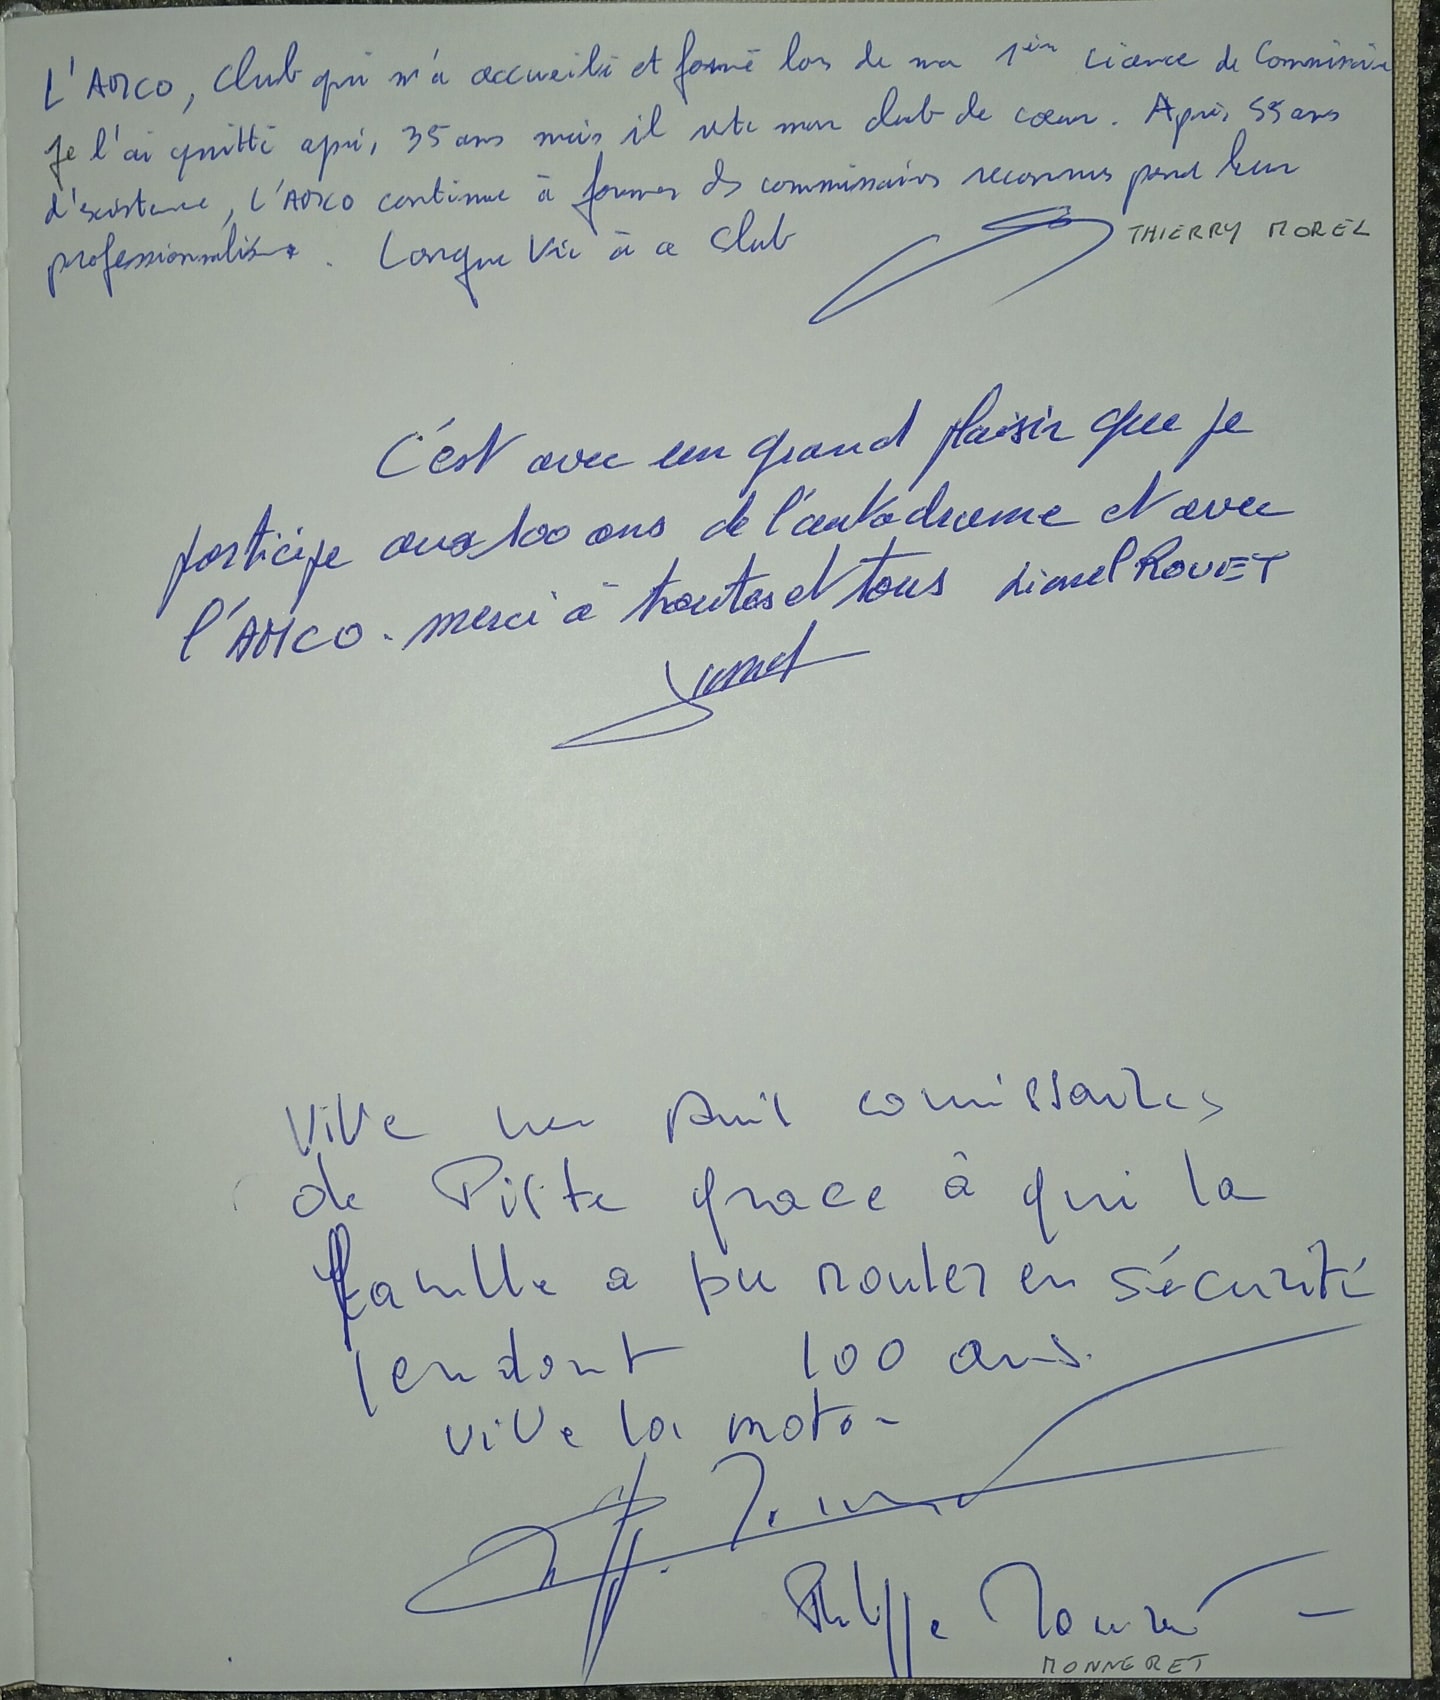 L'AMCO, club qui m'a accueilli et formé lors de ma 1ère Licence de Commissaire
Je l'ai quitté après 35 ans mais il reste mon club de cœur. Après 55 ans
d'existence, L'AMCO continue à former des commissaires reconnus pour leur
professionnalisme. Longue Vie à ce Club
THIERRY MOREL
C'est avec un grand plaisir que je
participe aux 100 ans de l'autodrome et avec
l'AMCO. merci à toutes et tous Lionel ROUET
Vive les commissaires
de Piste grace à qui la
famille a pu rouler en sécurité
pendant 100 ans.
vive la moto
Philippe Monneret
MONNERET